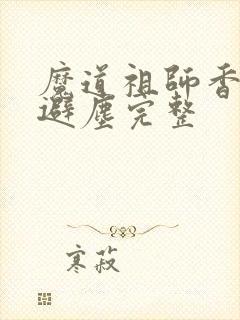 魔道祖師香
避塵完整
寒菽